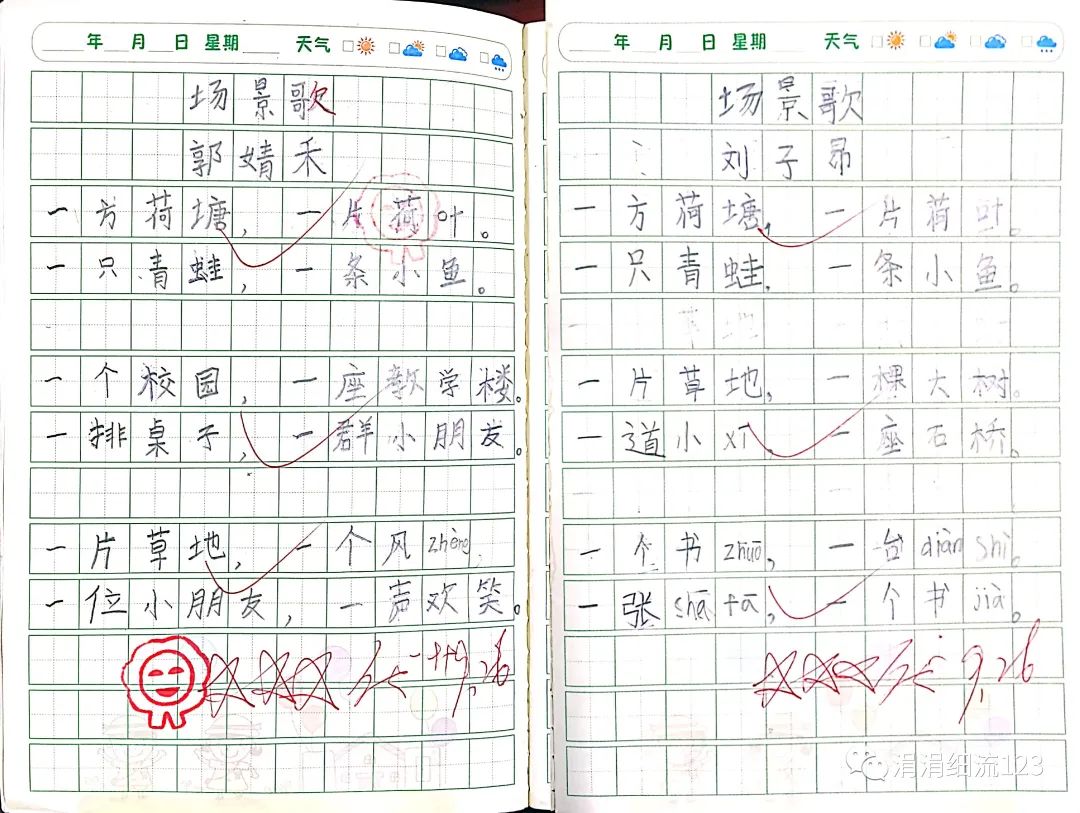 年 月 日 星期 天气
场景歌
郭婧禾
一方荷塘，一片荷叶。
一只青蛙，一条小鱼。
一个校园，一座教学楼。
一排桌子，一群小朋友。
一片草地，一个风zhēng
一位小朋友，一声欢笑。
9.26
年 月 日 星期 天气
场景歌
刘子昂
一方荷塘，一片荷叶。
一只青蛙，一条小鱼。
草地
一片草地，一棵大树。
一道小xī，一座石桥。
一个书zhuō，一台diànshì。
一张shāfā，一个书jià。
9.26
涓涓细流123